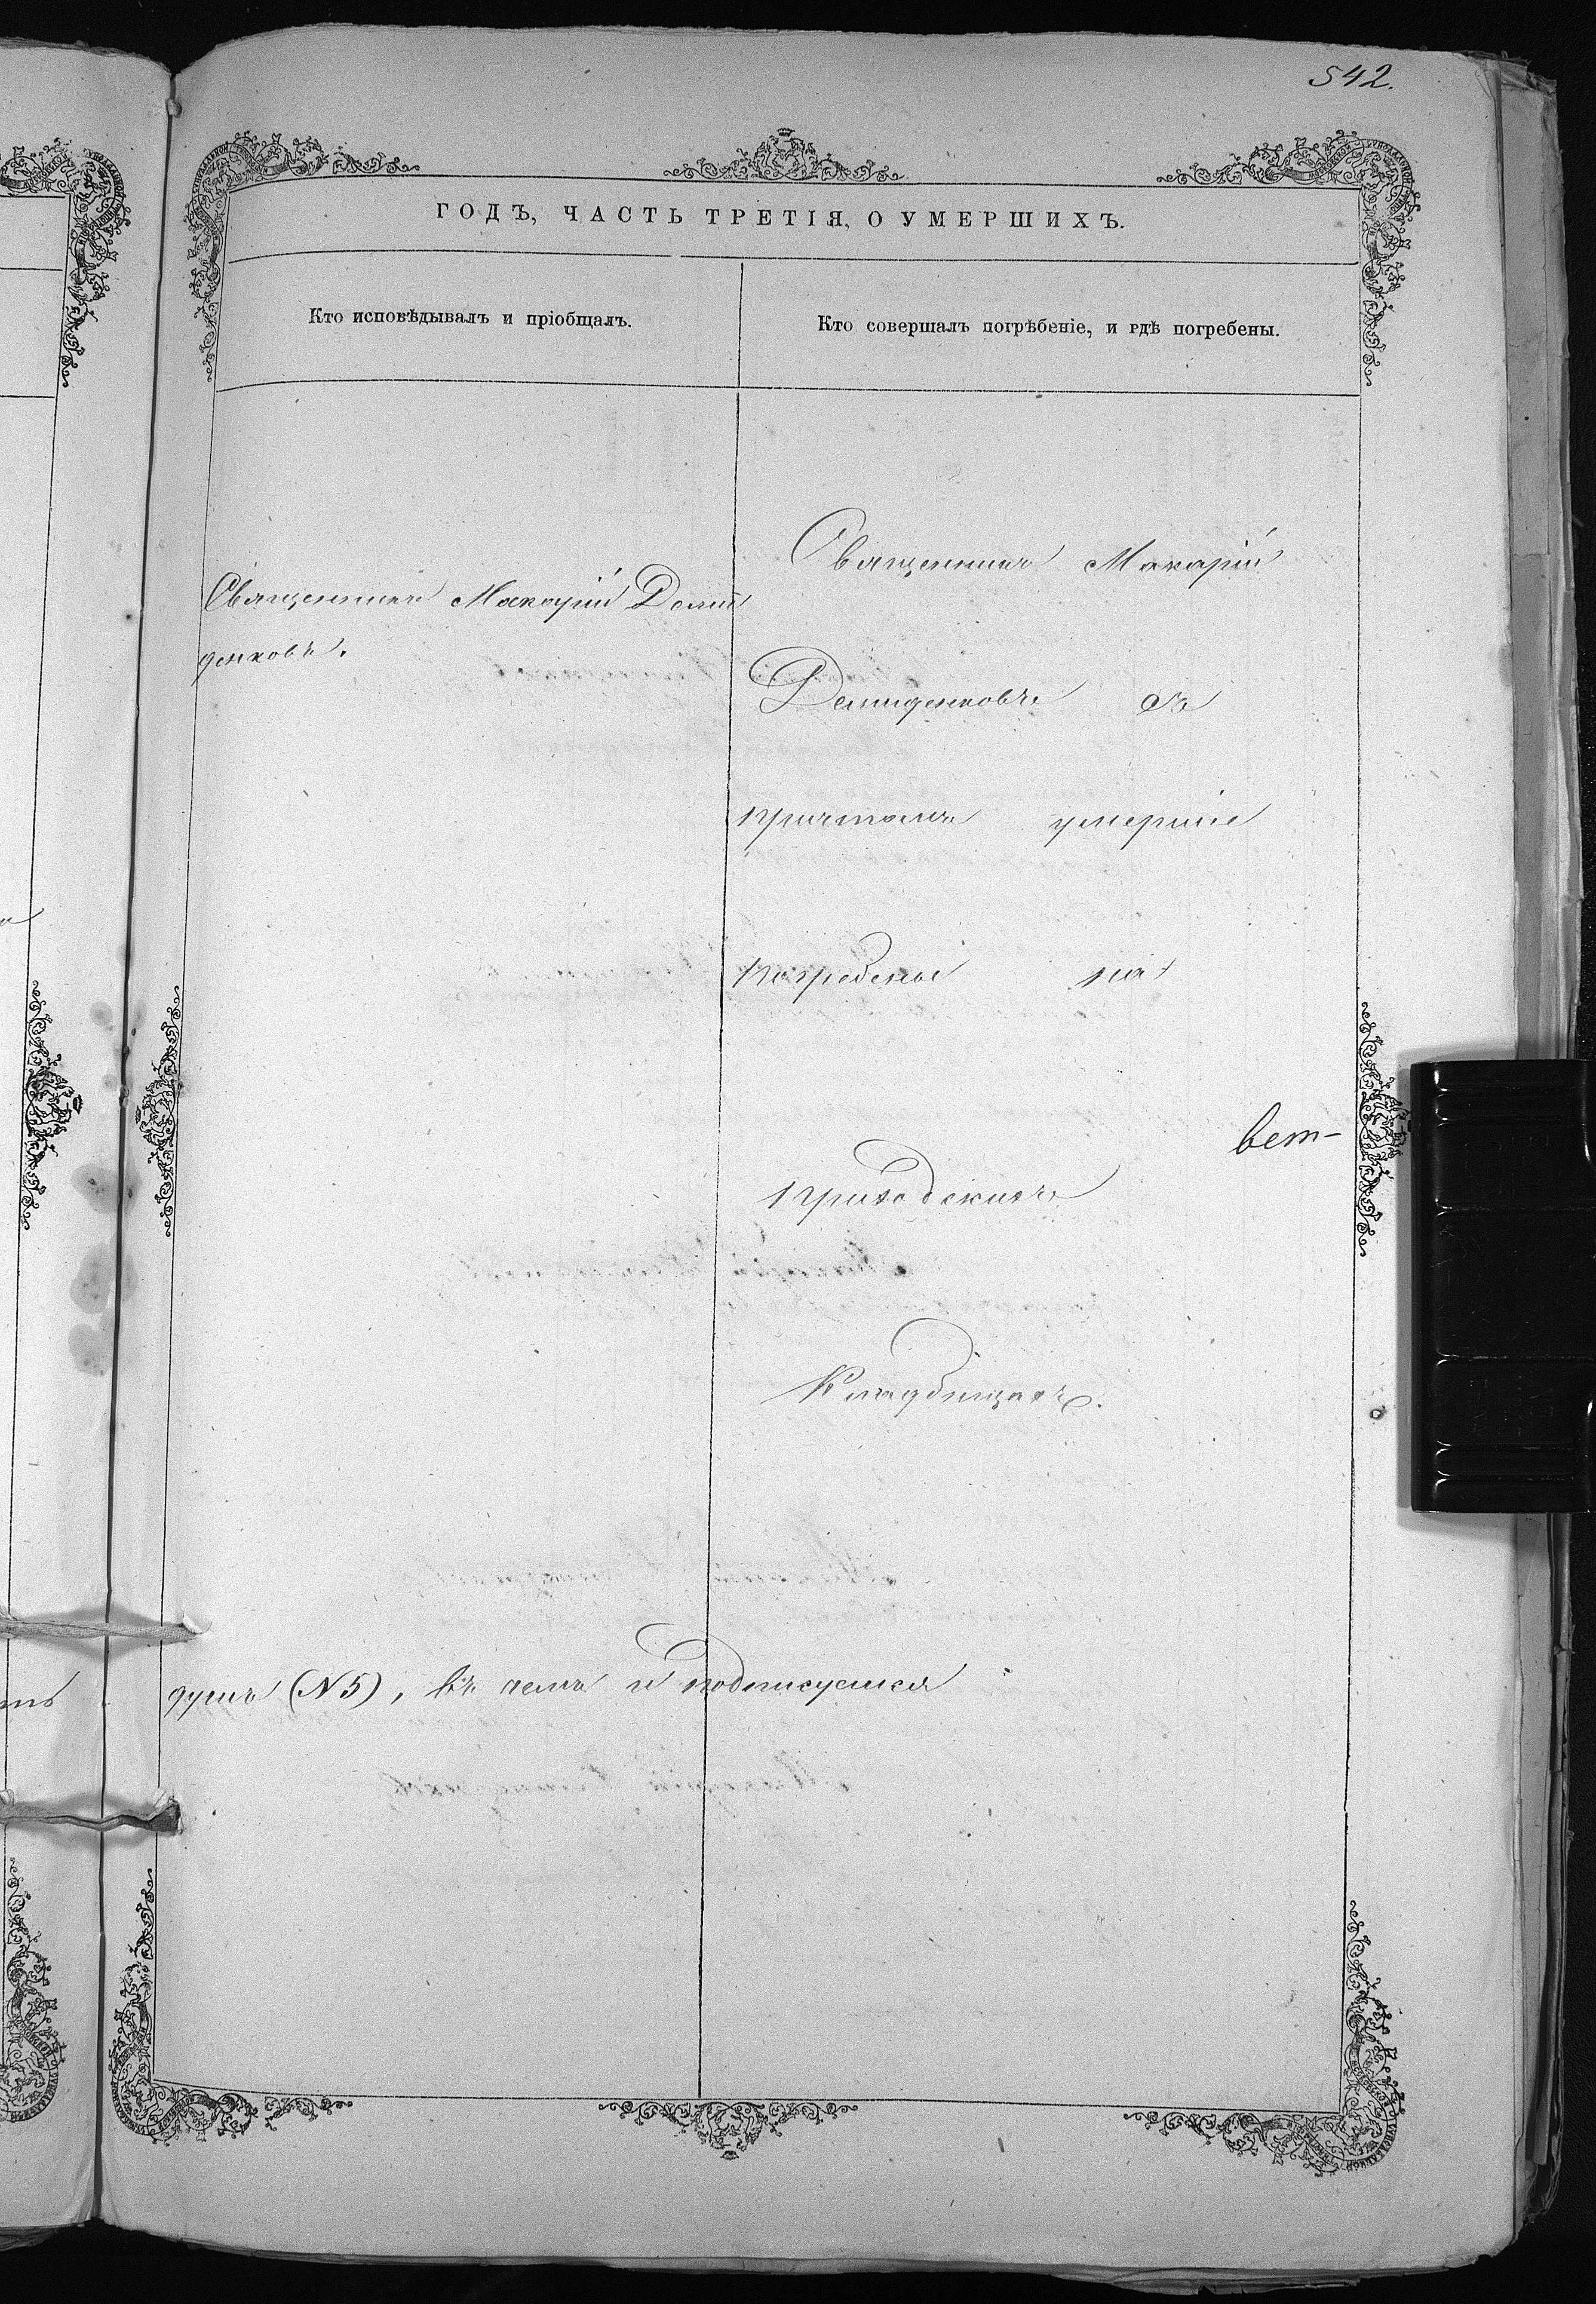 542.
ГОДЪ, ЧАСТЬ ТРЕТІЯ, О УМЕРШИХЪ.
Кто исповѣдывалъ и пріобщалъ.
Кто совершалъ погрѣбеніе, и гдѣ погребены.
Священникъ Макарій Деми
денковъ.
Священникъ Макарій
Демиденковъ съ
причтомъ умершіе
погребены на
вет-
приходскихъ
Кладбищахъ.
ть
душъ (N 5), въ чемъ и подписуемся